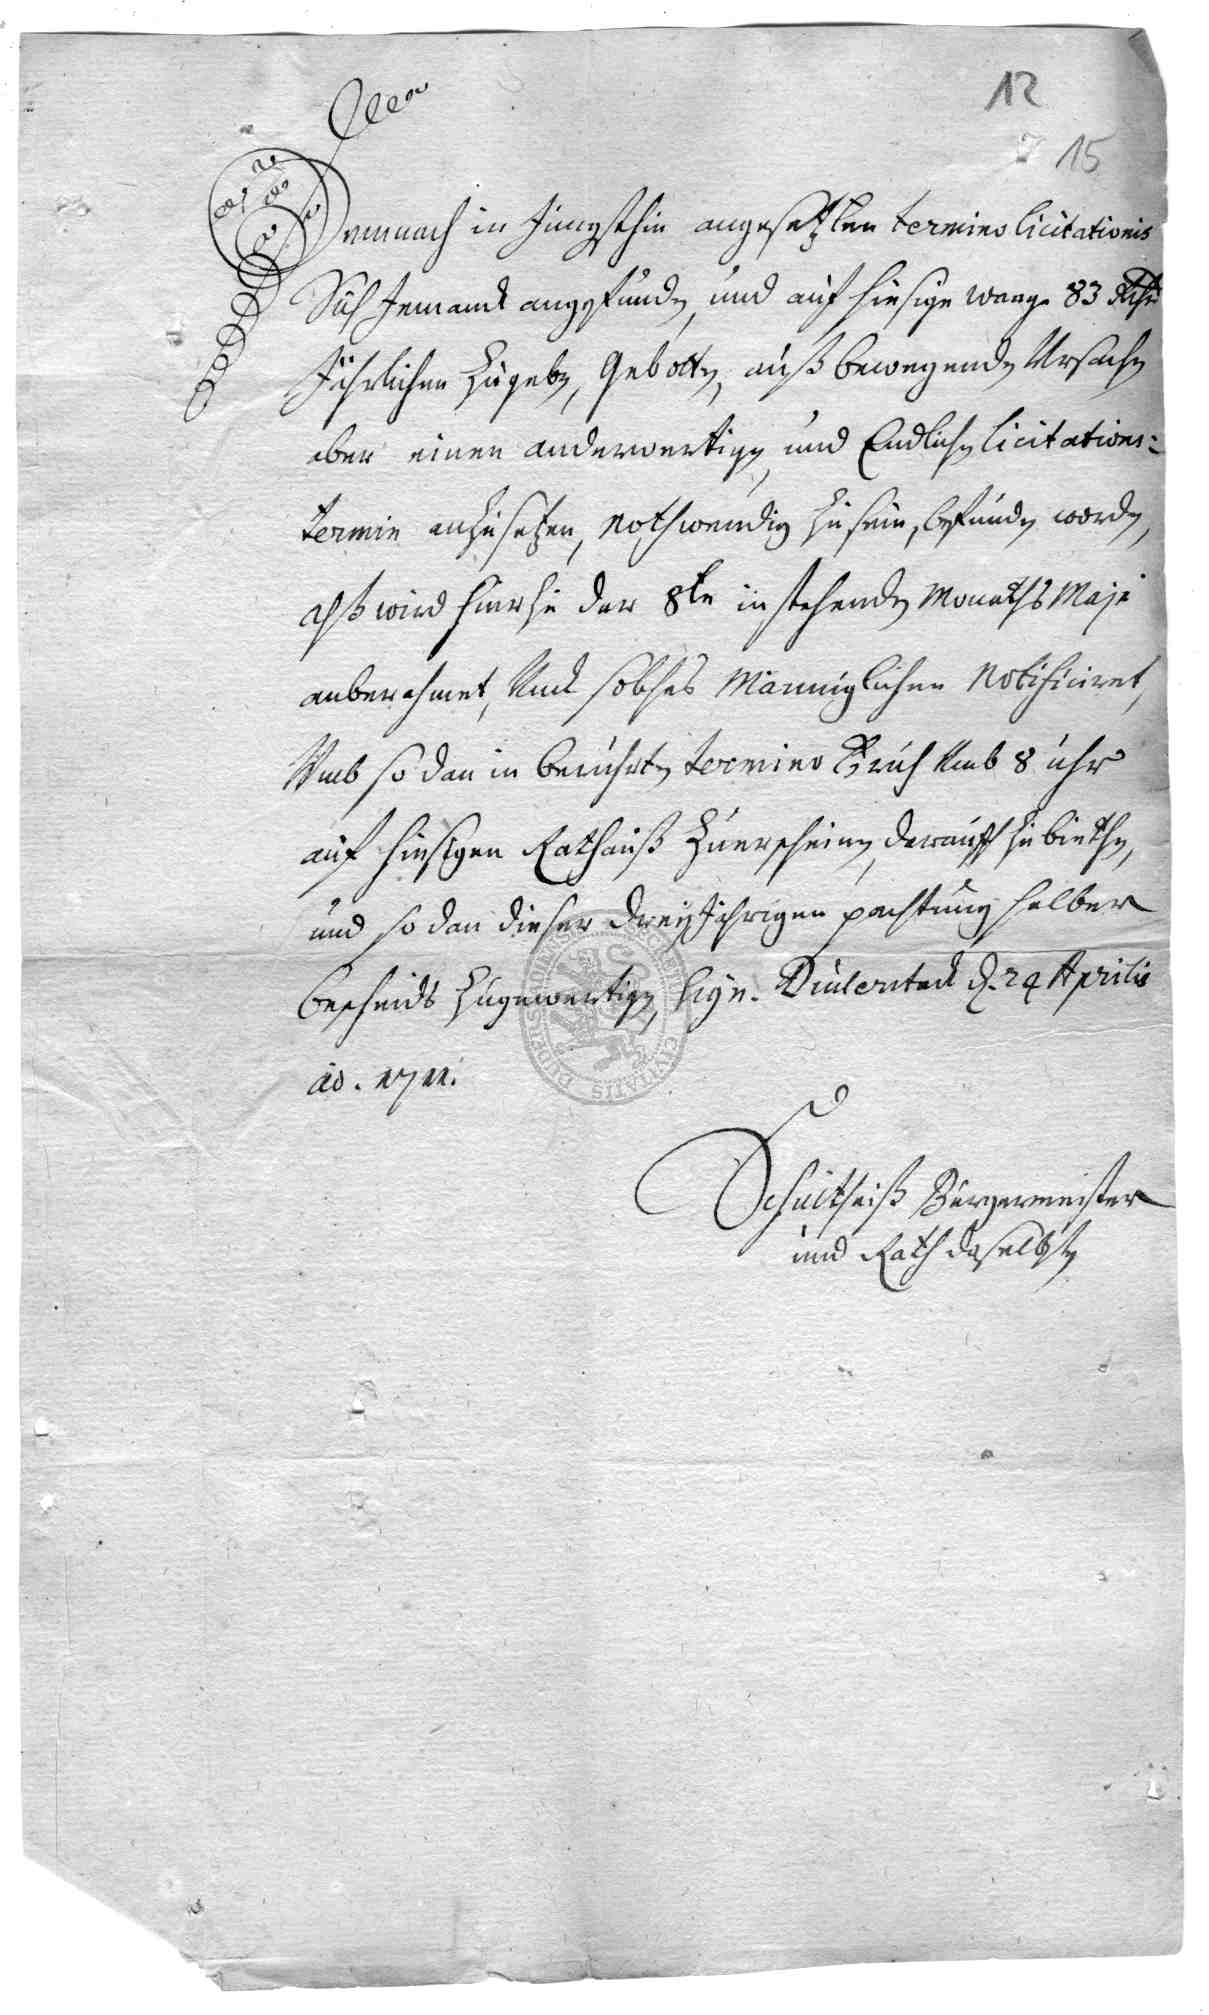 12
15
Demnach in Jüngsthin angesetzten termino licitationis
Sich Jemandt angefunden, und auf hiesige waage 83 Rthr
Jährlichen zu geben, Gebotten, auß bewegenden Ursachen
aber einen anderwertigen, und Endlichen licitations-
Termin anzusetzen, nothwendig zu sein, befunden worden,
alß wird hierzu der 8te instehenden Monaths Maji
anberahmet, Undt solches Männiglichen Notificiret,
Umb so dan in berührten termino Früh Umb 8 uhr
auf hiesigen Rathauß zu erscheinen, darauff zu biethen,
und so dan dieser dreyJährigen pachtung halber
bescheids zu gewertigen, Sign. Duderstadt d. 24 Aprilis
ao. 1711.
Schultheiß Bürgermeister
und Rath daselbsten